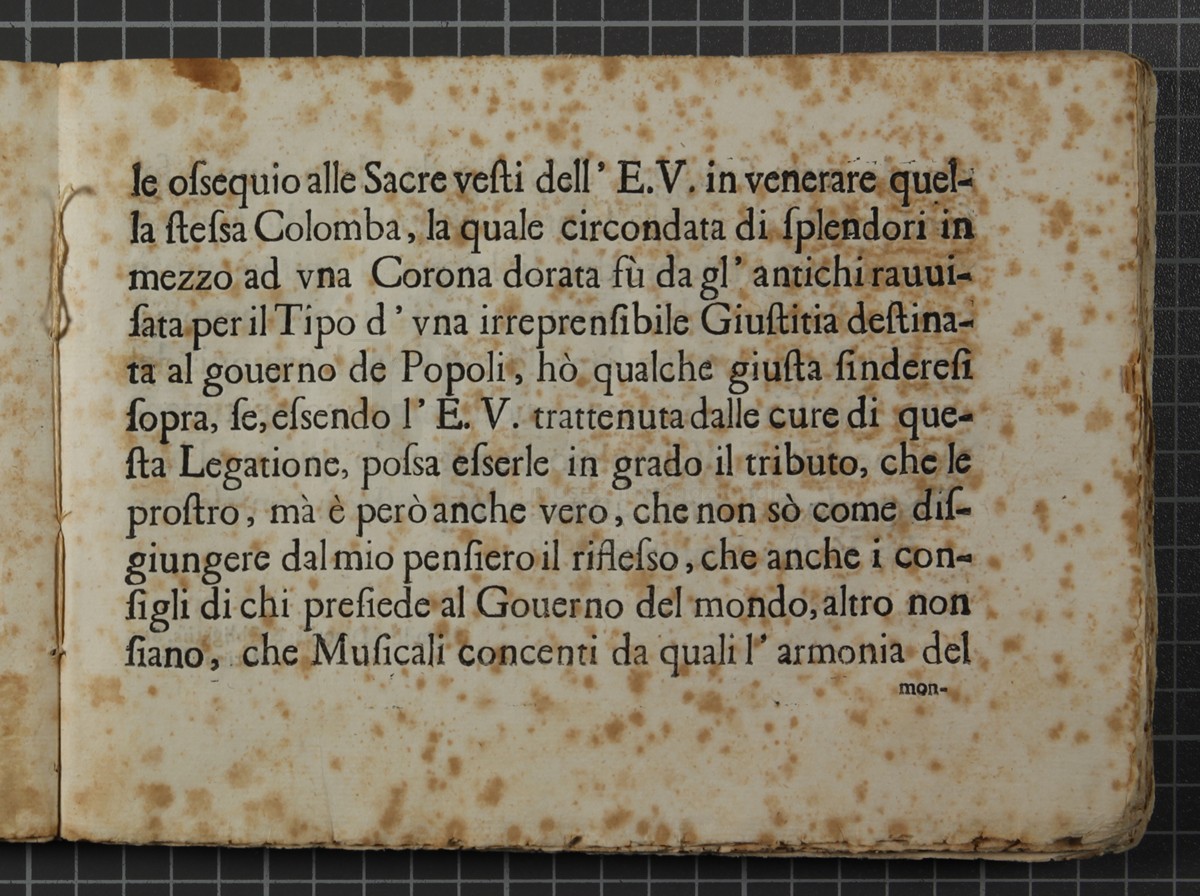 le oſsequio alle Sacre veſti dell' E. V. in venerare quel-
la ſteſsa Colomba, la quale circondata di ſplendori in
mezzo ad vna Corona dorata fù da gl' antichi rauui-
ſata per il Tipo d' vna irreprenſibile Giuſtitia deſtina-
ta al gouerno de Popoli, hò qualche giuſta ſindereſi
ſopra, ſe, eſsendo l' E. V. trattenuta dalle cure di que-
ſta Legatione, poſsa eſserle in grado il tributo, che le
proſtro, mà è però anche vero, che non sò come diſ-
giungere dal mio penſiero il rifleſso, che anche i con-
ſigli di chi preſiede al Gouerno del mondo, altro non
ſiano, che Muſicali concenti da quali l' armonia del
mon-